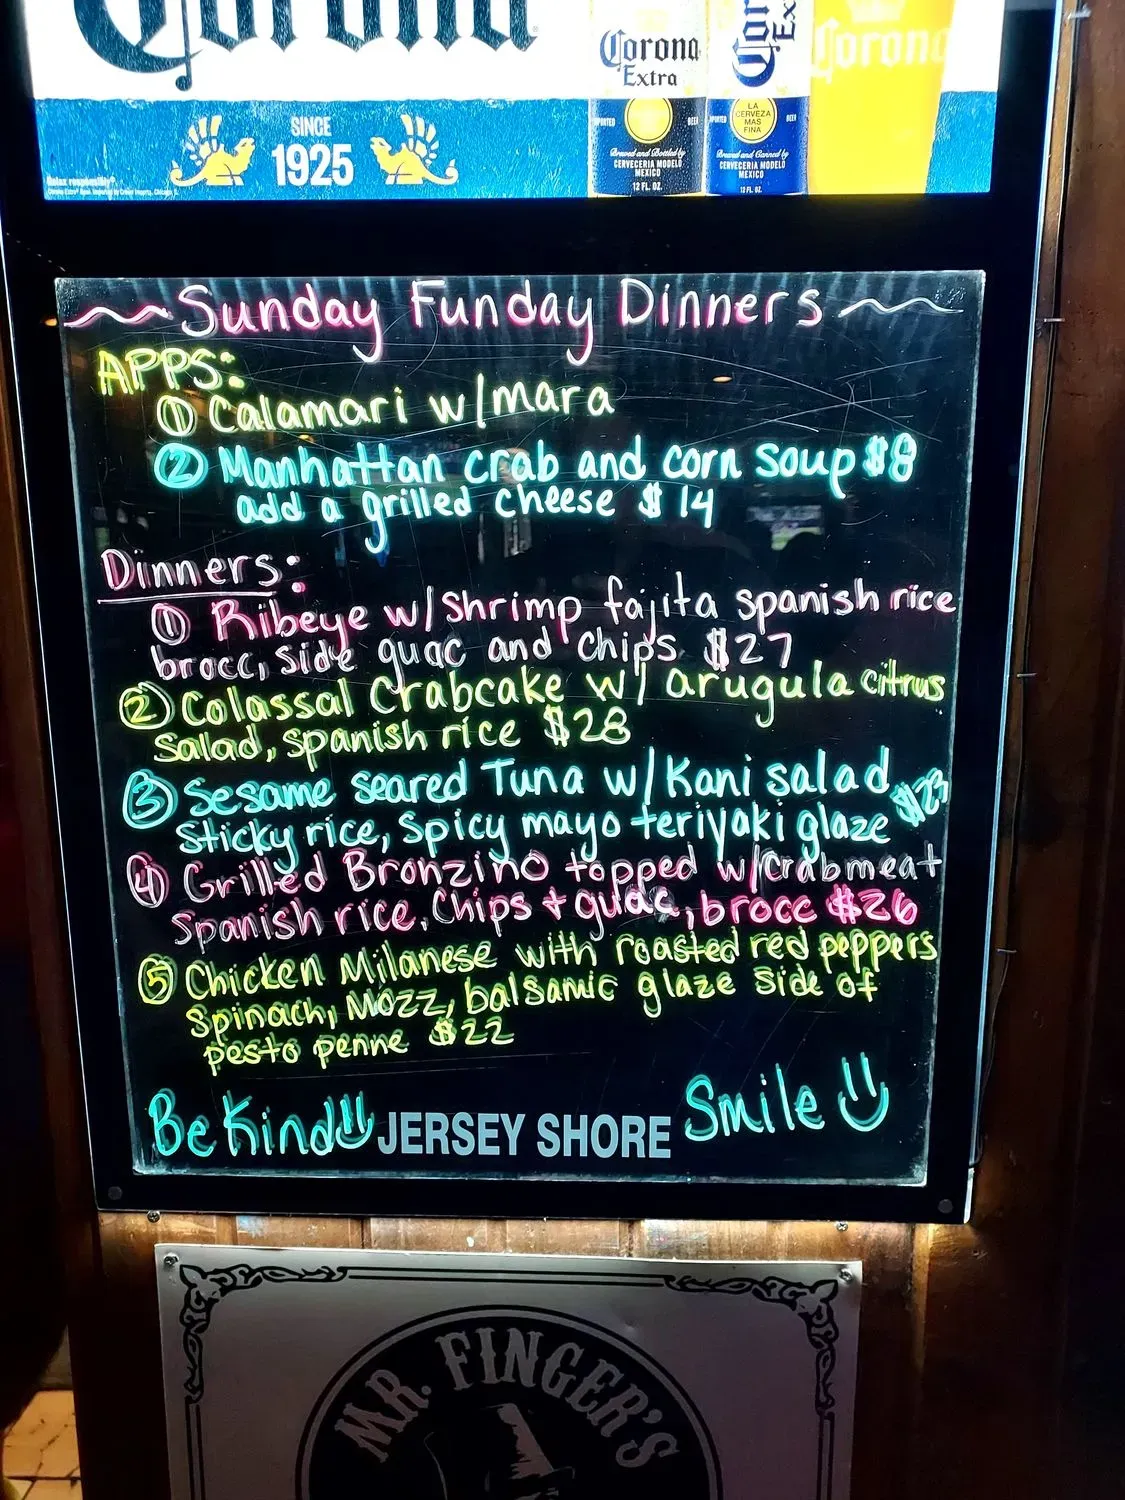 Corona
SINCE
1925
Relax responsibly
Corona
Extra
LA
CERVEZA
MAS
FINA
IMPORTED
BEER
Brewed and Bottled by
CERVECERIA MODELO
MEXICO
12 FL. OZ.
Corona
Extra
LA
CERVEZA
MAS
FINA
IMPORTED
BEER
Brewed and Canned by
CERVECERIA MODELO
MEXICO
12 FL. OZ.
Corona
Sunday Funday Dinners
APPS:
① Calamari w/mara
② Manhattan crab and corn soup $8
add a grilled cheese $14
Dinners:
① Ribeye w/shrimp fajita spanish rice
brocc, side guac and chips $27
② Colassal Crabcake w/ arugula citrus
salad, spanish rice $28
③ Sesame seared Tuna w/Kani salad
sticky rice, spicy mayo teriyaki glaze $23
④ Grilled Bronzino topped w/crabmeat
spanish rice, Chips + guac, brocc $26
⑤ Chicken Milanese with roasted red peppers
spinach, mozz, balsamic glaze side of
pesto penne $22
Be Kind
JERSEY SHORE
Smile
MR. FINGER'S